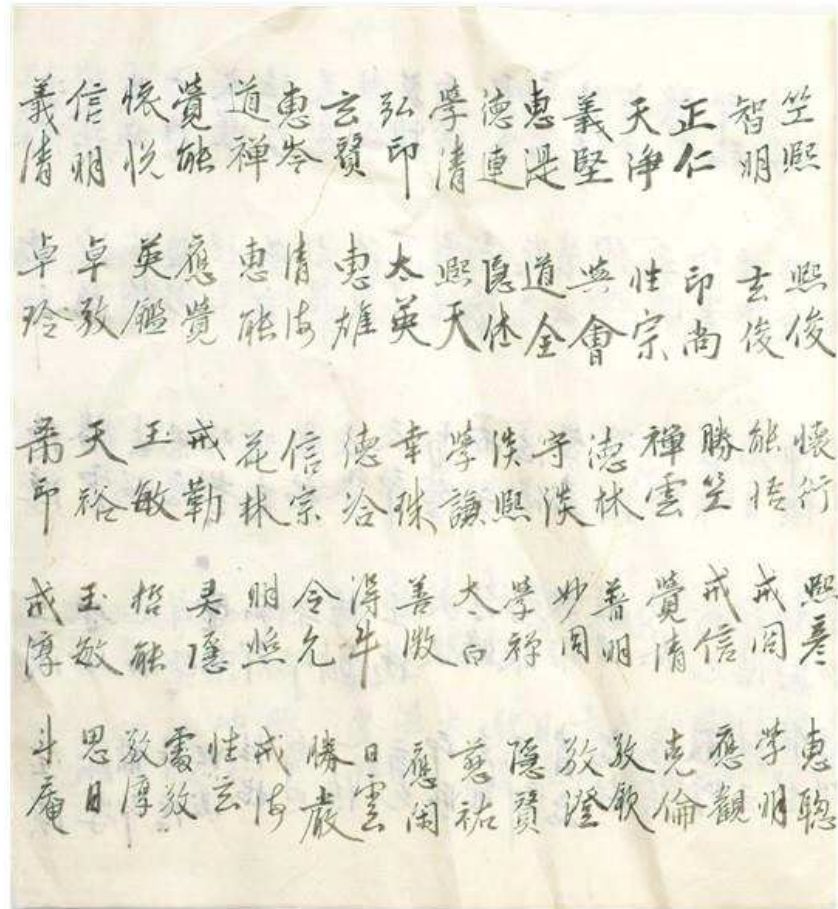 竺熙 智明 正仁 天淨 義堅 惠湜 德連 學清 弘印 玄賢 惠岑 道禪 覺能 懷悦 信明 義清
熙俊 玄俊 印尚 性宗 與會 道全 隐休 熙天 太英 惠雄 清海 惠能 應覺 英鑑 卓敎 卓玲
懷行 能悟 勝竺 禪雲 德林 守淡 淡熙 學謙 幸珠 德谷 信宗 花林 戒勤 玉敏 天裕 印
熙彦 戒同 戒信 覺清 普明 妙周 學禅 太白 善微 得牛 令允 明照 灵隱 哲能 玉敏 戒淳
惠聰 學明 應觀 克倫 敎欽 敎澄 隐賢 慈祐 應閑 日雲 勝嚴 戒海 性玄 敎 敎淳 思日 斗庵